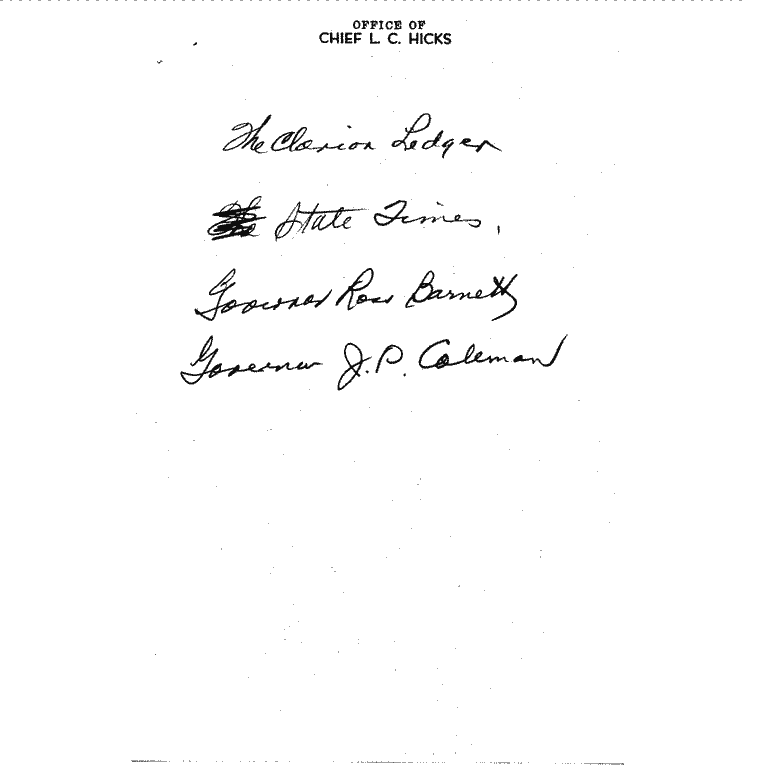 OFFICE OF
CHIEF L. C. HICKS
The Clarion Ledger
The State Times,
Governor Ross Barnett
Governor J.P. Coleman